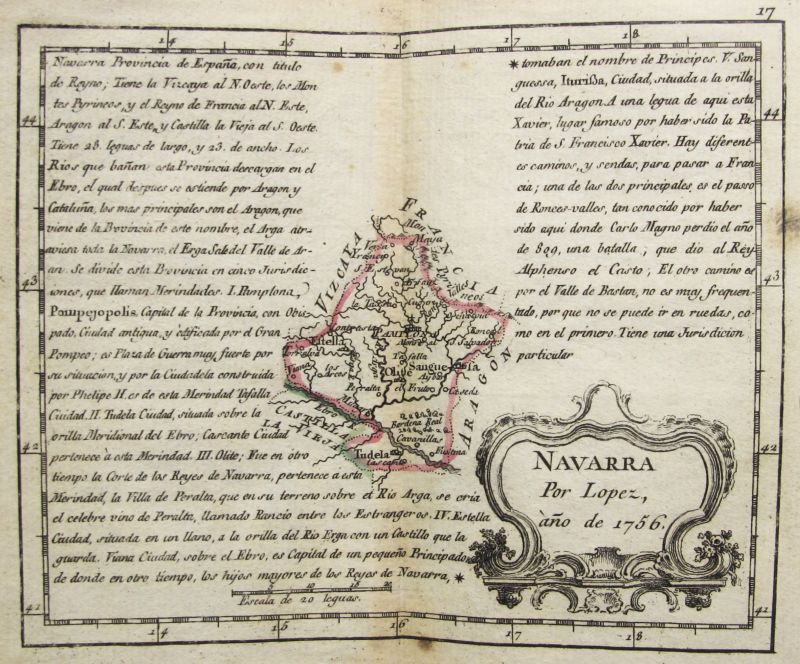 17
14 15 16 17 18
Navarra Provincia de España, con titulo
de Reyno; Tiene la Vizcaya al N. Oeste, los Mon
tes Pyrineos, y el Reyno de Francia al N. Este,
Aragon al S. Este, y Castilla la Vieja al S. Oeste.
Tiene 28. leguas de largo, y 23. de ancho. Los
Rios que bañan esta Provincia descargan en el
Ebro, el qual despues se estiende por Aragon y
Cataluña, los mas principales son el Aragon, que
viene de la Provincia de este nombre, el Arga atr-
aviesa toda la Navarra, el Erga Sale del Valle de Ar-
an. Se divide esta Provincia en cinco Jurisdic-
iones, que llaman Merindades. I. Pamplona,
Pompejopolis, Capital de la Provincia, con Obis-
pado, Ciudad antigua, y edificada por el Gran
Pompeo; es Plaza de Guerra muy fuerte por
su situacion, y por la Ciudadela construida
por Phelipe II. es de esta Merindad Tafalla
Ciudad. II. Tudela Ciudad, situada sobre la
orilla Meridional del Ebro; Cascante Ciudad
pertenece à esta Merindad. III. Olite; Fue en otro
tiempo la Corte de los Reyes de Navarra, pertenece á esta
Merindad, la Villa de Peralta, que en su terreno sobre el Rio Arga, se cria
el celebre vino de Peralta, llamado Rancio entre los Estrangeros. IV. Estella
Ciudad, situada en un llano, a la orilla del Rio Erga con un Castillo que la
guarda. Viana Ciudad, sobre el Ebro, es Capital de un pequeño Principado
de donde en otro tiempo, los hijos mayores de los Reyes de Navarra, *
* tomaban el nombre de Principes. V. San-
guessa, Iturissa, Ciudad, situada a la orilla
del Rio Aragon. A una legua de aqui esta
Xavier, lugar famoso por haber sido la Pa-
tria de S. Francisco Xavier. Hay diferent-
es caminos, y sendas, para pasar a Fran
cia; una de las dos principales, es el passo
de Ronces-valles, tan conocido por haber
sido aqui donde Carlo Magno perdio el año
de 809, una batalla; que dio al Rey
Alphenso el Casto; El otro camino es
por el Valle de Bastan, no es muy frequen-
tado, por que no se puede ir en ruedas, co-
mo en el primero. Tiene una Jurisdicion
particular
FRANCIA
VIZCAYA
ARAGON
CASTILLA
LA VIEJA
Maya
S. Estevan
PAMPLONA
Estella
Viana
los Arcos
Tafalla
Olite
Sanguessa
Peralta
Caseda
Ebro
Bardena Real
Cavanillas
Tudela
Cascante
S. Salvador
44
43
42
41
44
43
42
41
NAVARRA
Por Lopez,
año de 1756.
Escala de 20 leguas.
14 15 16 17 18